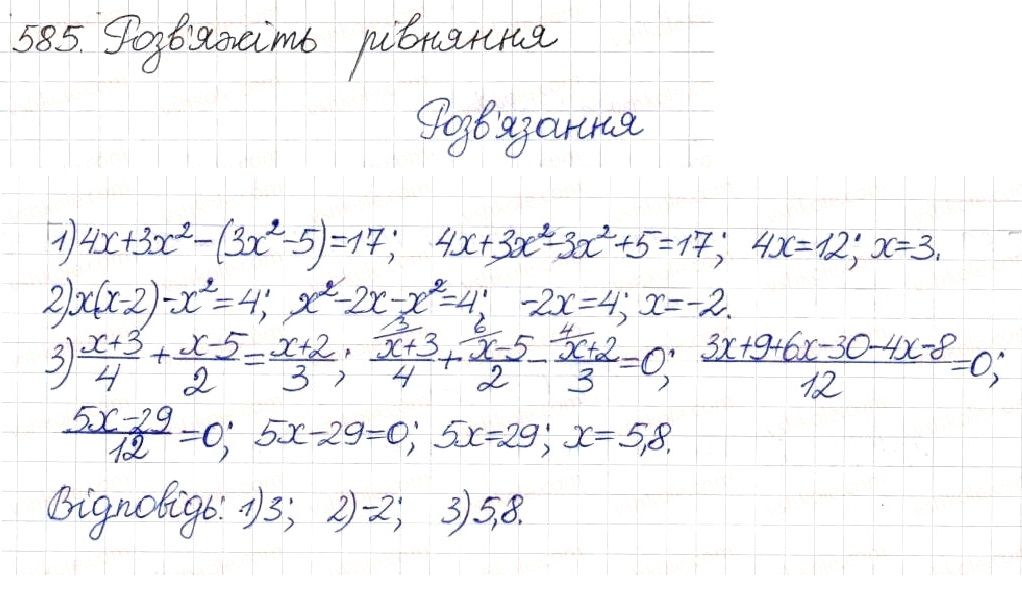 585. Розв'яжіть рівняння
Розв'язання
1) 4x+3x²-(3x²-5)=17; 4x+3x²-3x²+5=17; 4x=12; x=3.
2) x(x-2)-x²=4; x²-2x-x²=4; -2x=4; x=-2.
3) (x+3)/4 + (x-5)/2 = (x+2)/3; ³⁾(x+3)/4 + ⁶⁾(x-5)/2 - ⁴⁾(x+2)/3 = 0; (3x+9+6x-30-4x-8)/12 = 0;
(5x-29)/12 = 0; 5x-29=0; 5x=29; x=5,8.
Відповідь: 1) 3; 2) -2; 3) 5,8.